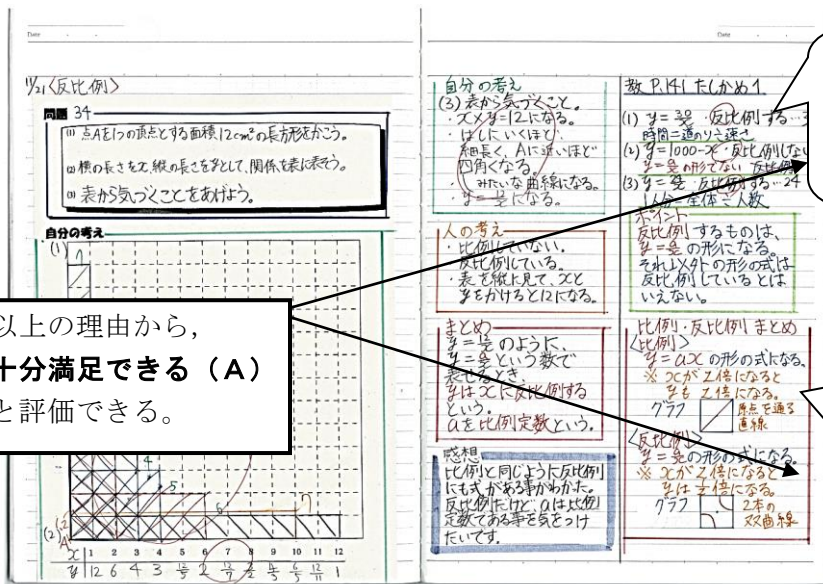 Date
11/21〈反比例〉
問題 34
(1) 点Aを1つの頂点とする面積12cm²の長方形をかこう。
(2) 横の長さをx,縦の長さをyとして、関係を表に表そう。
(3) 表から気づくことをあげよう。
自分の考え
(1)
以上の理由から,
十分満足できる(A)
と評価できる。
(2)
x 1 2 3 4 5 6 7 8 9 10 11 12
y 12 6 4 3 12/5 2 12/7 3/2 4/3 6/5 12/11 1
Date
自分の考え
(3) 表から気づくこと。
・x×y=12になる。
・はしにいくほど、
細長く、Aに近いほど
四角くなる。
みたいな曲線になる。
人の考え
・比例していない。
・反比例している。
・表を縦に見て、xと
yをかけると12になる。
まとめ
のように、
という数で
表せるとき、
yはxに反比例する
という。
aを比例定数という。
感想
比例と同じように反比例
にも式がある事がわかた。
反比例だけど、aは比例
定数である事を気をつけ
たいです。
教 P.141 たしかめ1
(1) 反比例する
時間=道のり÷速さ
(2) y=1000-x・反比例しない
の形でない 反比例
(3) 反比例する…24
1人分=全体÷人数
ポイント
反比例するものは、
の形になる。
それ以外の形の式は
反比例しているとは
いえない。
比例・反比例 まとめ
〈比例〉
y=axの形の式になる。
※ xがZ倍になると
yもZ倍になる。
グラフ 原点を通る
直線
〈反比例〉
の形の式になる。
※ xがZ倍になると
yは1/Z倍になる。
グラフ 2本の
双曲線